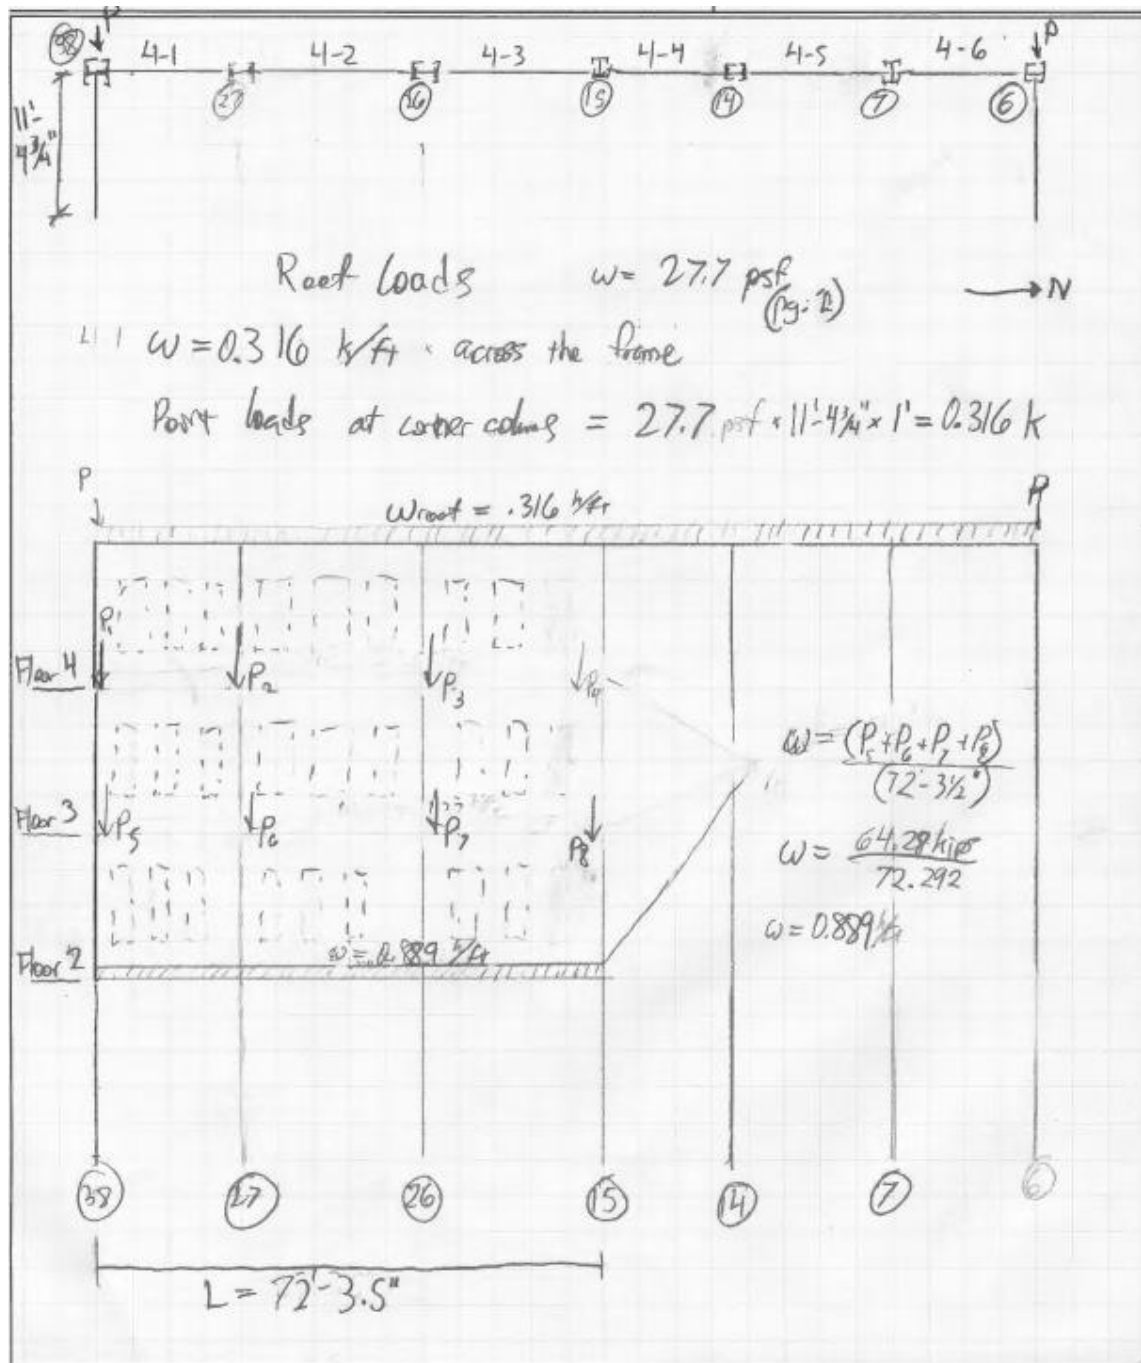 P
P
38
4-1
4-2
4-3
4-4
4-5
4-6
27
26
15
14
7
6
11'-
4 3/4"
Roof Loads w = 27.7 psf
(pg. 2)
N
4-1 w = 0.316 k/ft across the frame
Point loads at corner colums = 27.7 psf × 11'-4 3/4" × 1' = 0.316 k
P
P
Wroof = .316 k/ft
P1
Floor 4
P2
P3
P4
w = (P5 + P6 + P7 + P8)
(72'-3 1/2")
Floor 3
P5
P6
P7
P8
w = 64.28 kips
72.292
w = 0.889 k/ft
Floor 2
w = 0.889 k/ft
38
27
26
15
14
7
6
L = 72'-3.5"